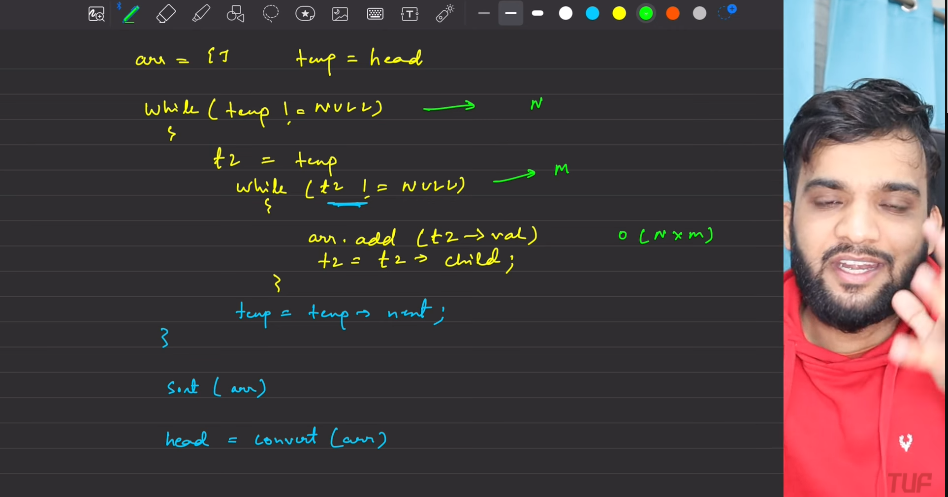 arr = []    temp = head
while ( temp != NULL)    →    N
{
t2 = temp
while ( t2 != NULL)    →    M
{
arr.add (t2→val)    O(N x M)
t2 = t2→ child;
}
temp = temp→ next;
}
sort (arr)
head = convert (arr)
TUF